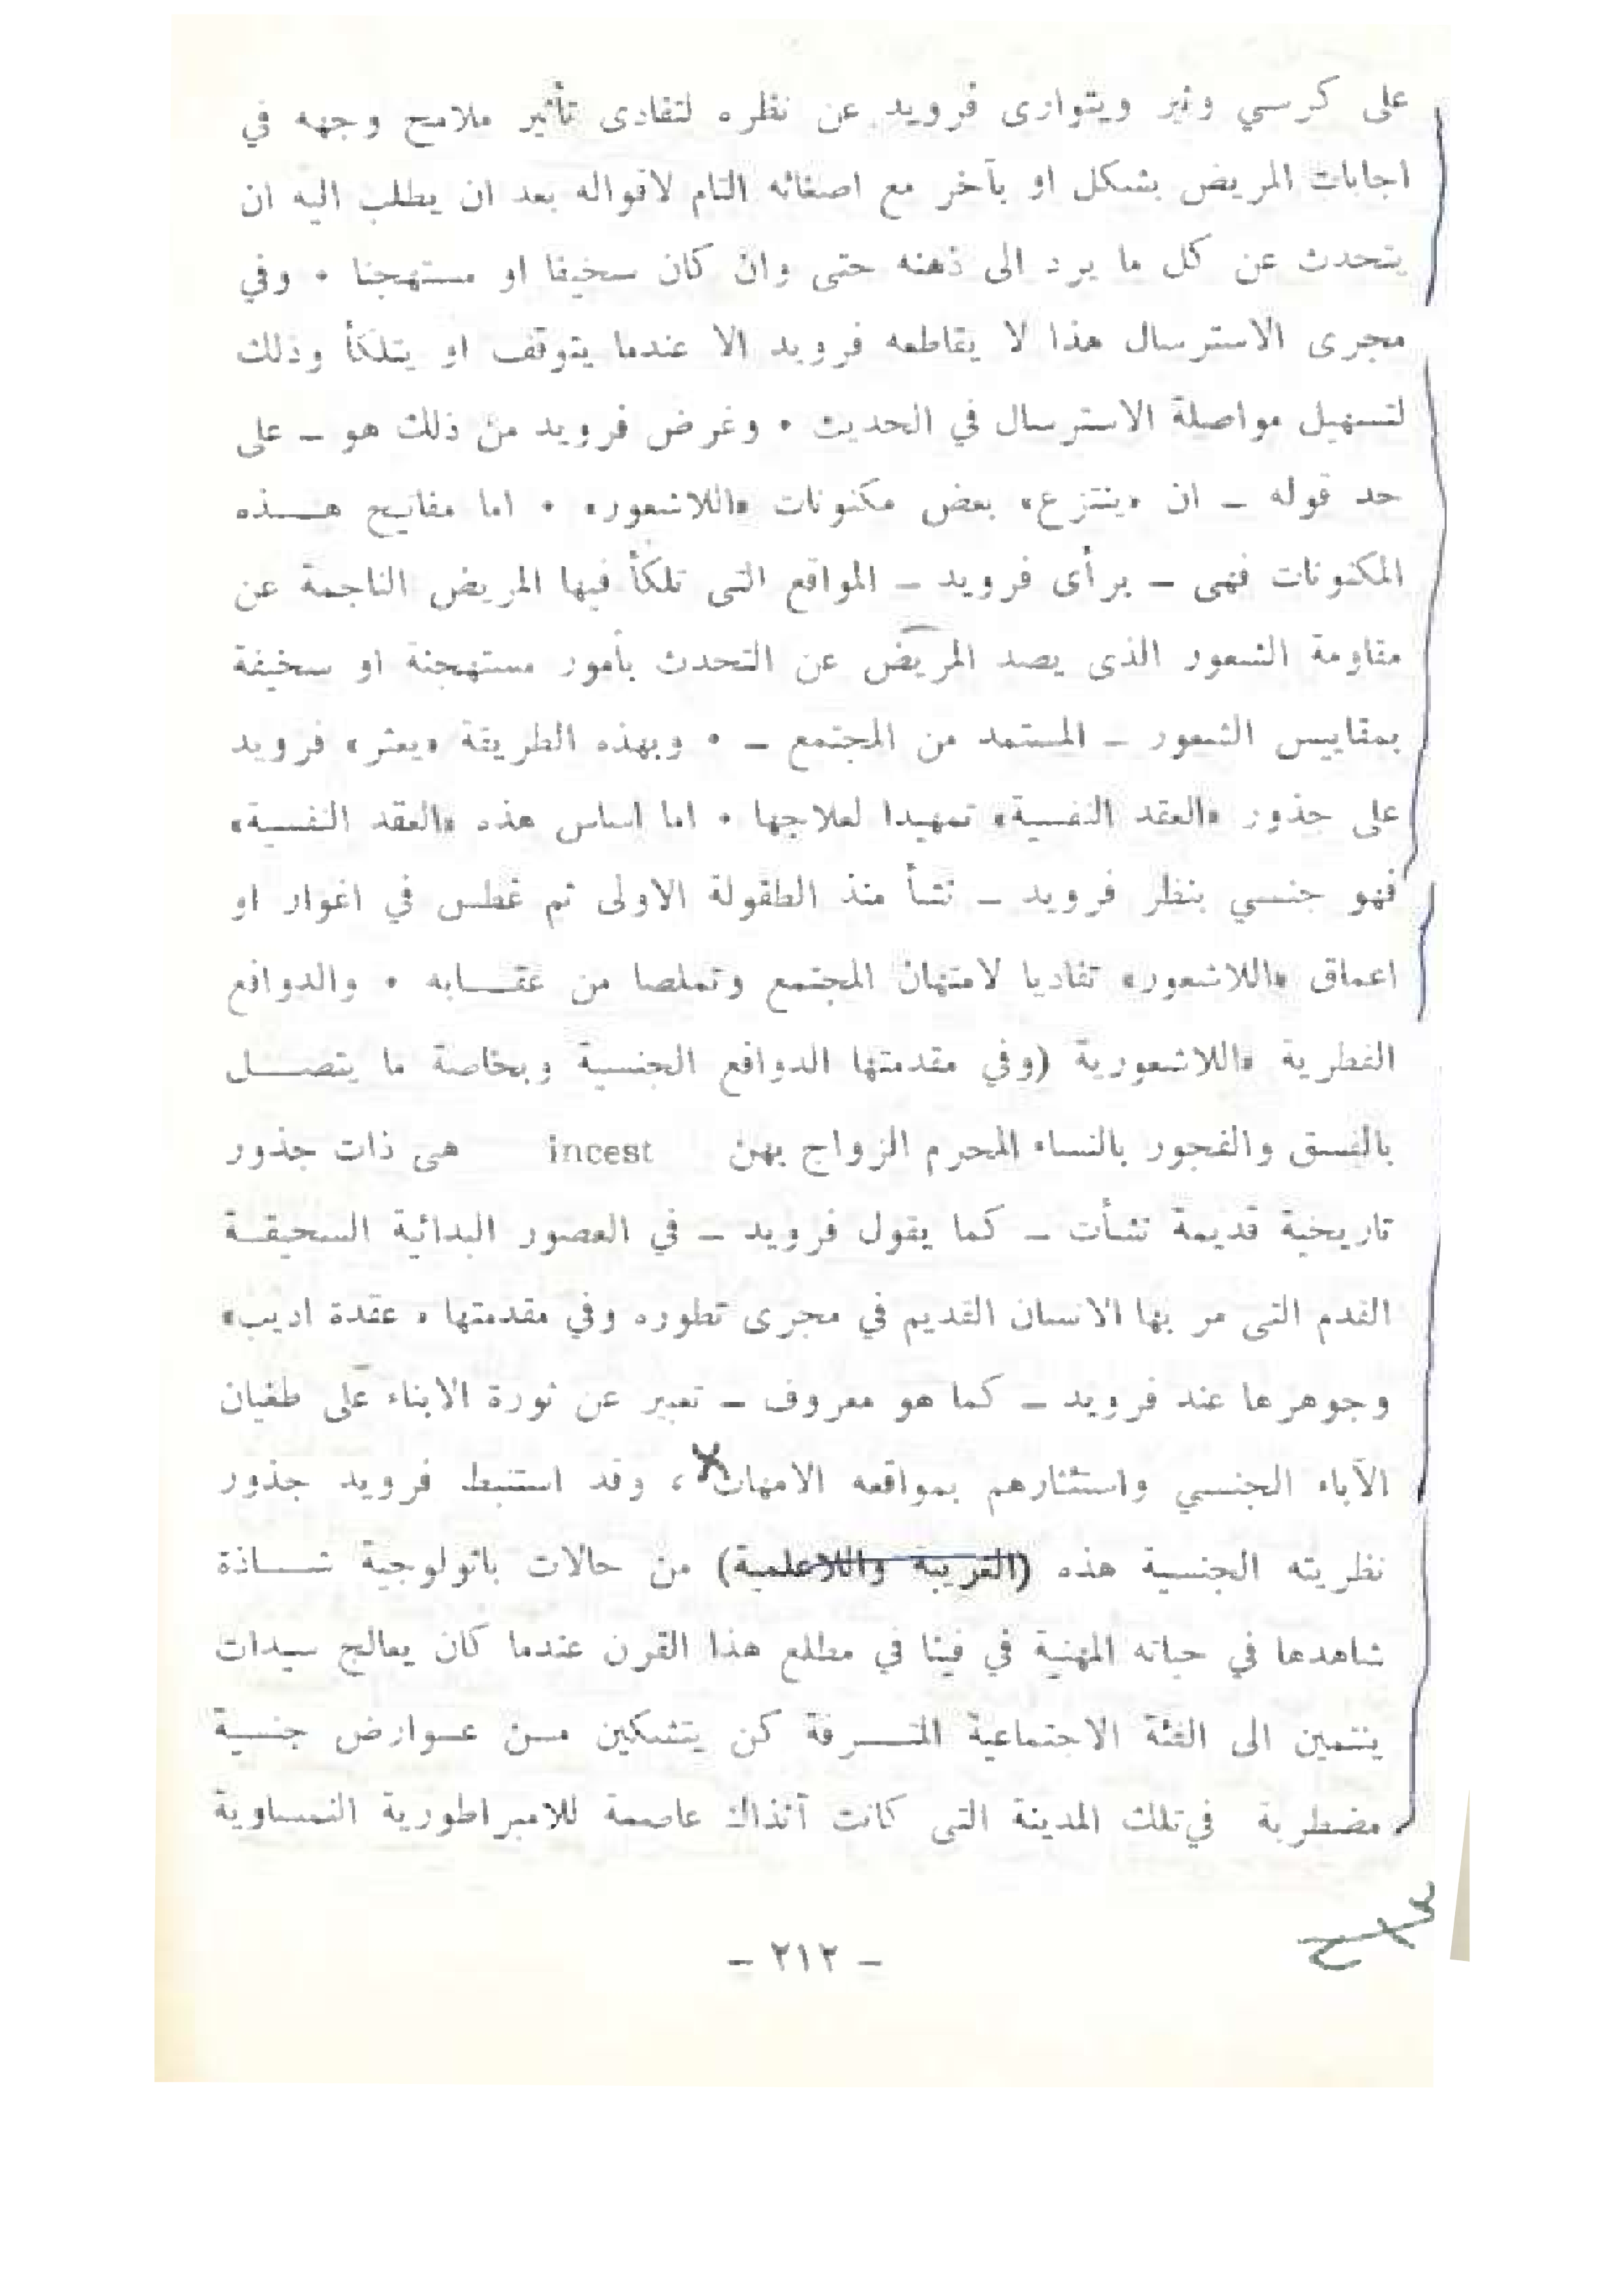 على كرسي وثير ويتوارى فرويد عن نظره لتفادى تأثير ملامح وجهه في
اجابات المريض بشكل او بآخر مع اصغائه التام لاقواله بعد ان يطلب اليه ان
يتحدث عن كل ما يرد الى ذهنه حتى وان كان سخيفا او مستهجنا ٠ وفي
مجرى الاسترسال هذا لا يقاطعه فرويد الا عندما يتوقف او يتلكأ وذلك
لتسهيل مواصلة الاسترسال في الحديث ٠ وغرض فرويد من ذلك هو ــ على
حد قوله ــ ان «ينتزع» بعض مكنونات «اللاشعور» ٠ اما مفاتيح هـــذه
المكنونات فهى ــ برأى فرويد ــ المواقع التى تلكأ فيها المريض الناجمة عن
مقاومة الشعور الذى يصد المريض عن التحدث بأمور مستهجنة او سخيفة
بمقاييس الشعور ــ المستمد من المجتمع ــ ٠ وبهذه الطريقة «يعثر» فرويد
على جذور «العقد النفسية» تمهيدا لعلاجها ٠ اما اساس هذه «العقد النفسية»
فهو جنسي بنظر فرويد ــ نشأ منذ الطفولة الاولى ثم غطس في اغوار او
اعماق «اللاشعور» تفاديا لامتهان المجتمع وتملصا من عقـــابه ٠ والدوافع
الفطرية «اللاشعورية (وفي مقدمتها الدوافع الجنسية وبخاصة ما يتصـــل
بالفسق والفجور بالنساء المحرم الزواج بهن incest هى ذات جذور
تاريخية قديمة نشأت ــ كما يقول فرويد ــ في العصور البدائية السحيقـة
القدم التى مر بها الانسان القديم في مجرى تطوره وفي مقدمتها « عقدة اديب»
وجوهرها عند فرويد ــ كما هو معروف ــ تعبير عن ثورة الابناء على طغيان
الآباء الجنسي واستئثارهم بمواقعه الامهات ، وقد استنبط فرويد جذور
نظريته الجنسية هذه (الغريبة واللاعلمية) من حالات باثولوجية شـــاذة
شاهدها في حياته المهنية في فينا في مطلع هذا القرن عندما كان يعالج سيدات
ينتمين الى الفئة الاجتماعية المتـــرفة كن يتشكين مـن عـوارض جنسية
مضطربة في تلك المدينة التى كانت آنذاك عاصمة للامبراطورية النمساوية
ــ ٢١٢ ــ